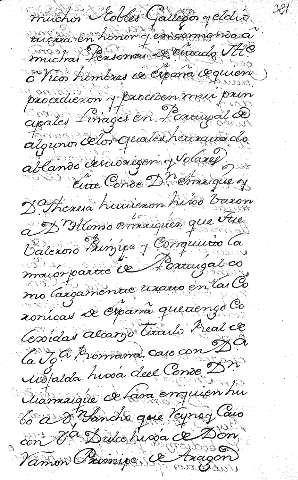 321
muchos Nobles Gallegos y el dio
tierra en honor y en
muchas Personas de estado
o Ricos hombres de España de quien
procedieron y proceden mui prin
cipales Linages en Portugal de
algunos de los quales haremos
ablando de su origen y solares
Este Conde Dn. Enrrique y
Da. Theresa hubieron hijo baron
a Dn. Alonso enrriquez que fue
Valeroso Prinzipe y Conquisto la
maior parte de Portugal co
mo largamente se vera en las Co
ronicas de españa que tengo co
lexidas alcanzo titulo Real de
la Yga. Romana, caso con Da.
Mafalda hixa del Conde Dn.
Manrrique de Lara en quien hu
bo a Dn. Sancho que reyno y Caso
con Da. Dulce hixa de Don
Ramon Prinzipe de Aragon